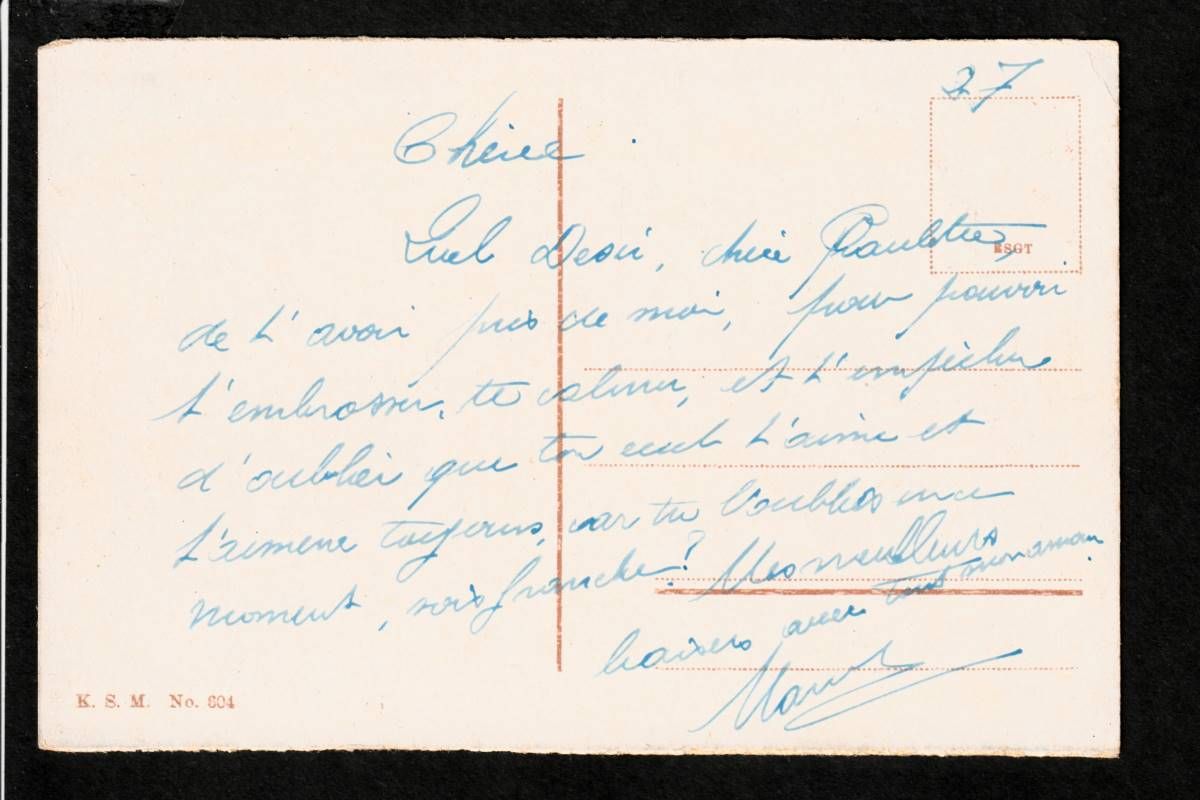 27
Chérie
Quel Desir, chérie
de t'avoir près de moi, pour pouvoir
t'embrasser, te calmer, et t'empêcher
d'oublier que ton t'aime et
t'aimera toujours, car tu l'oublias un
moment, sois franche? Mes meilleurs
baisers avec tout mon amour
ESGT
K. S. M. No. 804